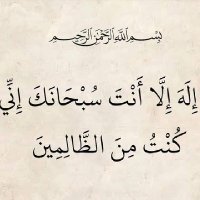 بِسْمِ اللَّهِ الرَّحْمَنِ الرَّحِيمِ
إِلَهَ إِلَّا أَنْتَ سُبْحَانَكَ إِنِّي
كُنْتُ مِنَ الظَّالِمِينَ